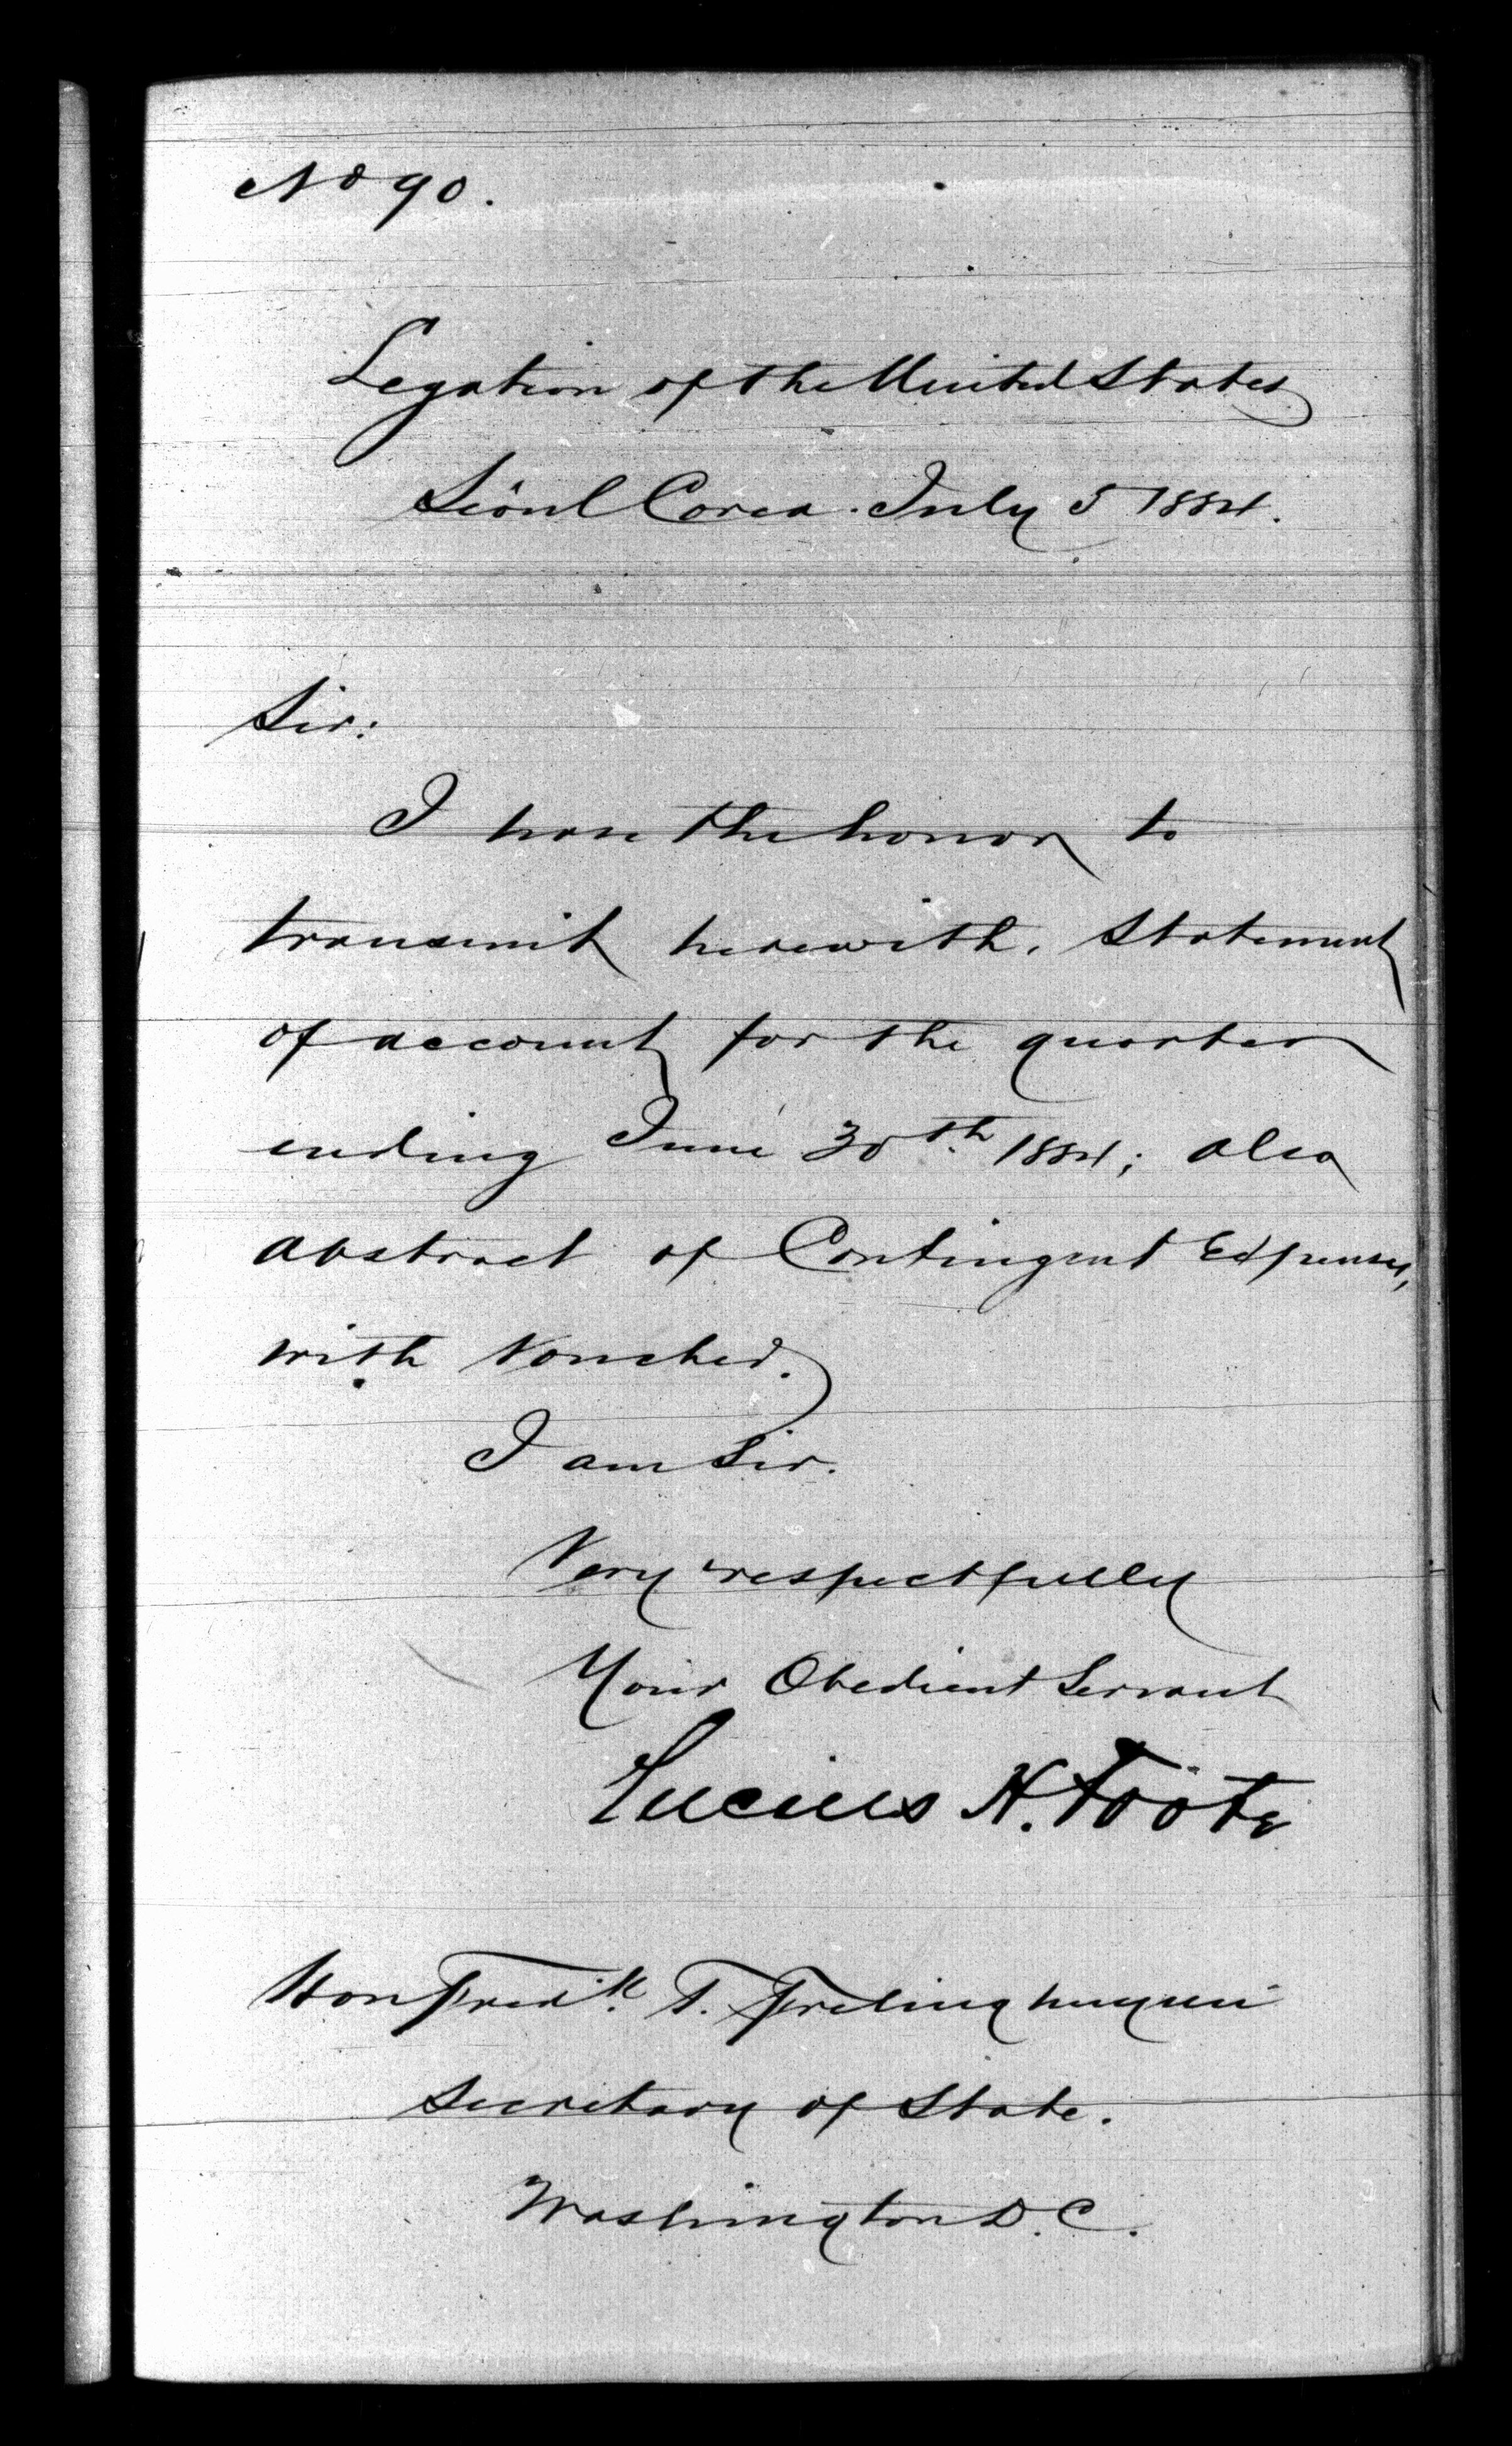 No 90.
Legation of the United States
Sëoul Corea. July 5 1884.
Sir:
I have the honor to
transmit herewith, Statement
of account for the quarter
ending June 30th 1884; also
abstract of Contingent Expenses,
with Voucher.
I am Sir.
Very respectfully
Your Obedient Servant
Lucius H. Foote
Hon Fred'k. T. Frelinghuysen
Secretary of State.
Washington D.C.